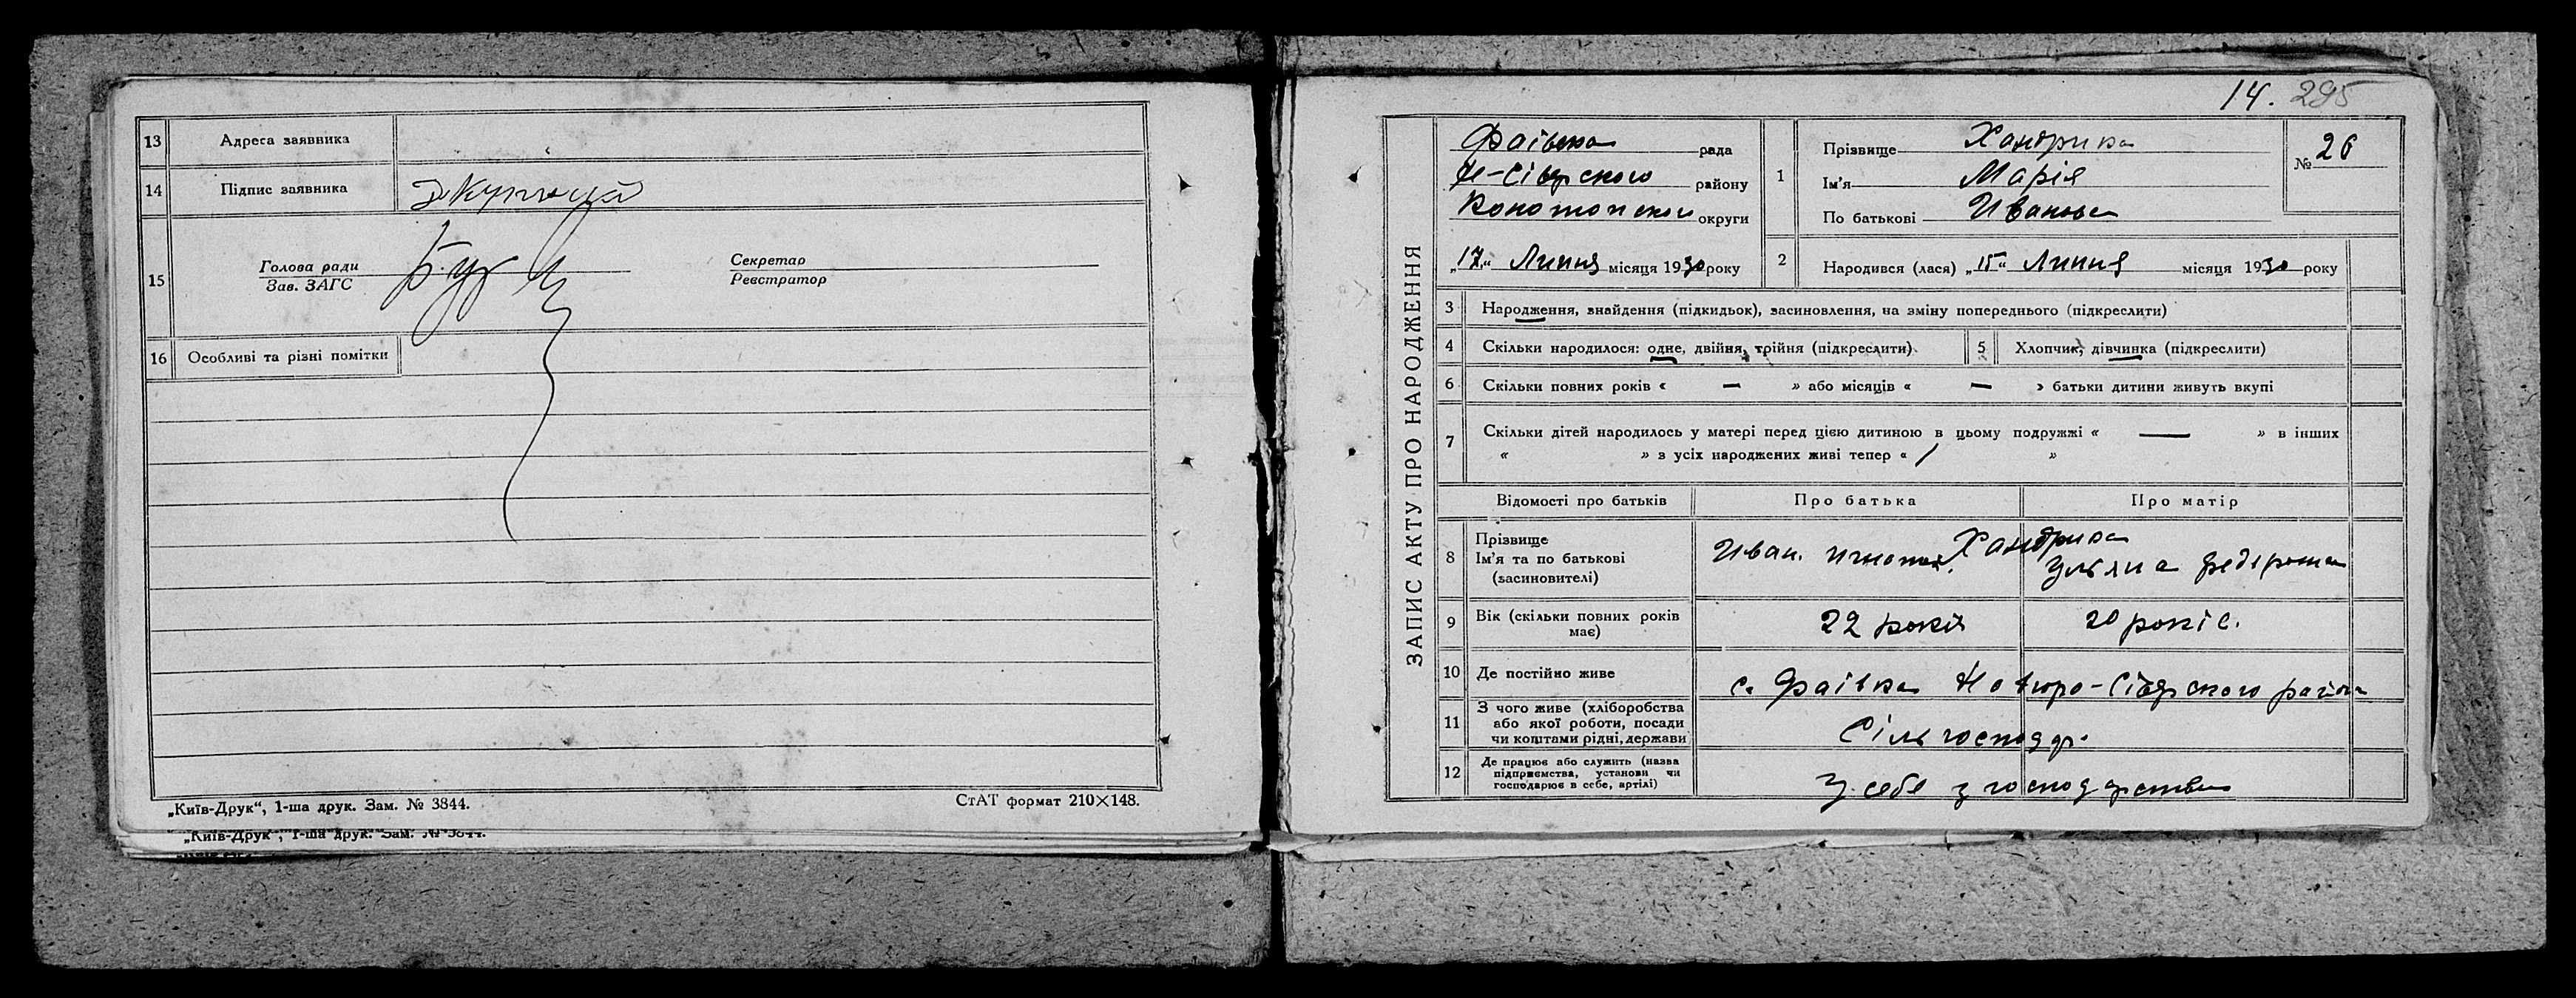 13 Адреса заявника
14 Підпис заявника
15 Голова ради
Зав. ЗАГС
Секретар
Реєстратор
16 Особливі та різні помітки
„Київ-Друк“, 1-ша друк. Зам. № 3844.
СтАТ формат 210×148.
„Київ-Друк“, 1-ша друк. Зам. № 3844.
14. 295
ЗАПИС АКТУ ПРО НАРОДЖЕННЯ
Фаівка рада
Н-Сіверского району
Конотопскои округи
„17“ Липня місяця 1930 року
1 Прізвище Хандрика
Ім'я Марія
По батькові Ивановна
№ 26
2 Народився (лася) „15“ Липня місяця 1930 року
3 Народження, знайдення (підкидьок), засиновлення, на зміну попереднього (підкреслити)
4 Скільки народилося: одне, двійня, трійня (підкреслити)
5 Хлопчик, дівчинка (підкреслити)
6 Скільки повних років « — » або місяців « — » батьки дитини живуть вкупі
7 Скільки дітей народилось у матері перед цією дитиною в цьому подружжі « — » в інших
« » з усіх народжених живі тепер « / »
Відомості про батьків Про батька Про матір
8 Прізвище
Ім'я та по батькові
(засиновителі)
Хандрика
Иван. Игнатов. Уляна
9 Вік (скільки повних років
має)
22 років 20 років.
10 Де постійно живе с. Фаівка Новгоро-Сіверского района
11 З чого живе (хліборобства
або якої роботи, посади
чи коштами рідні, держави
Сільгосподар.
12 Де працює або служить (назва
підприємства, установи чи
господарює в себе, артілі)
У себе у господарстви